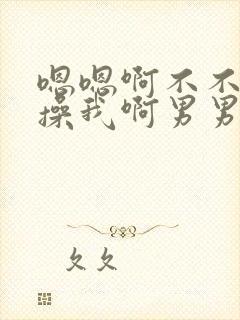 嗯嗯啊不不
操我啊男男
久久